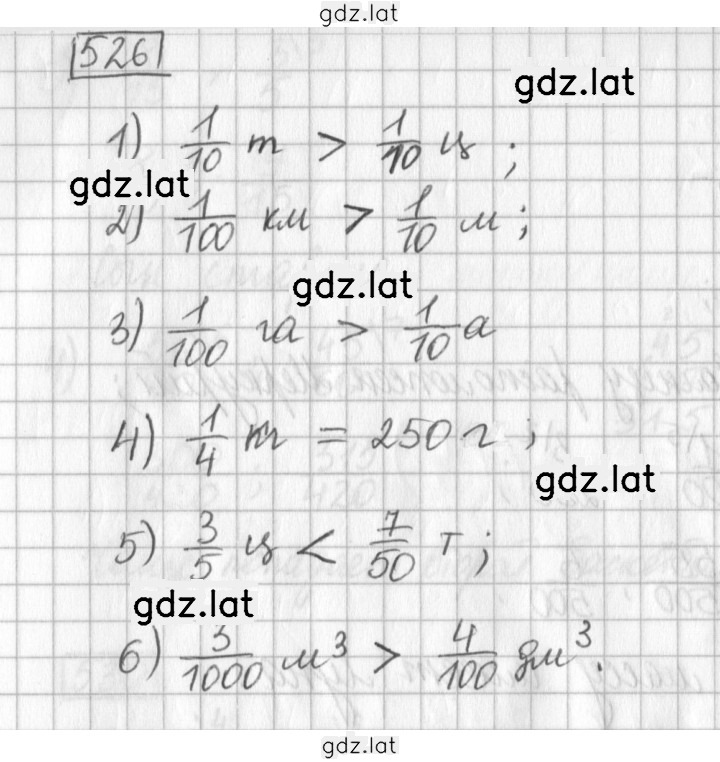 gdz.lat
526
gdz.lat
1) 1/10 т > 1/10 ц ;
gdz.lat
2) 1/100 км > 1/10 м ;
gdz.lat
3) 1/100 га > 1/10 а
4) 1/4 кг = 250 г ;
gdz.lat
5) 3/5 ц < 7/50 т ;
gdz.lat
6) 3/1000 м³ > 4/100 дм³.
gdz.lat